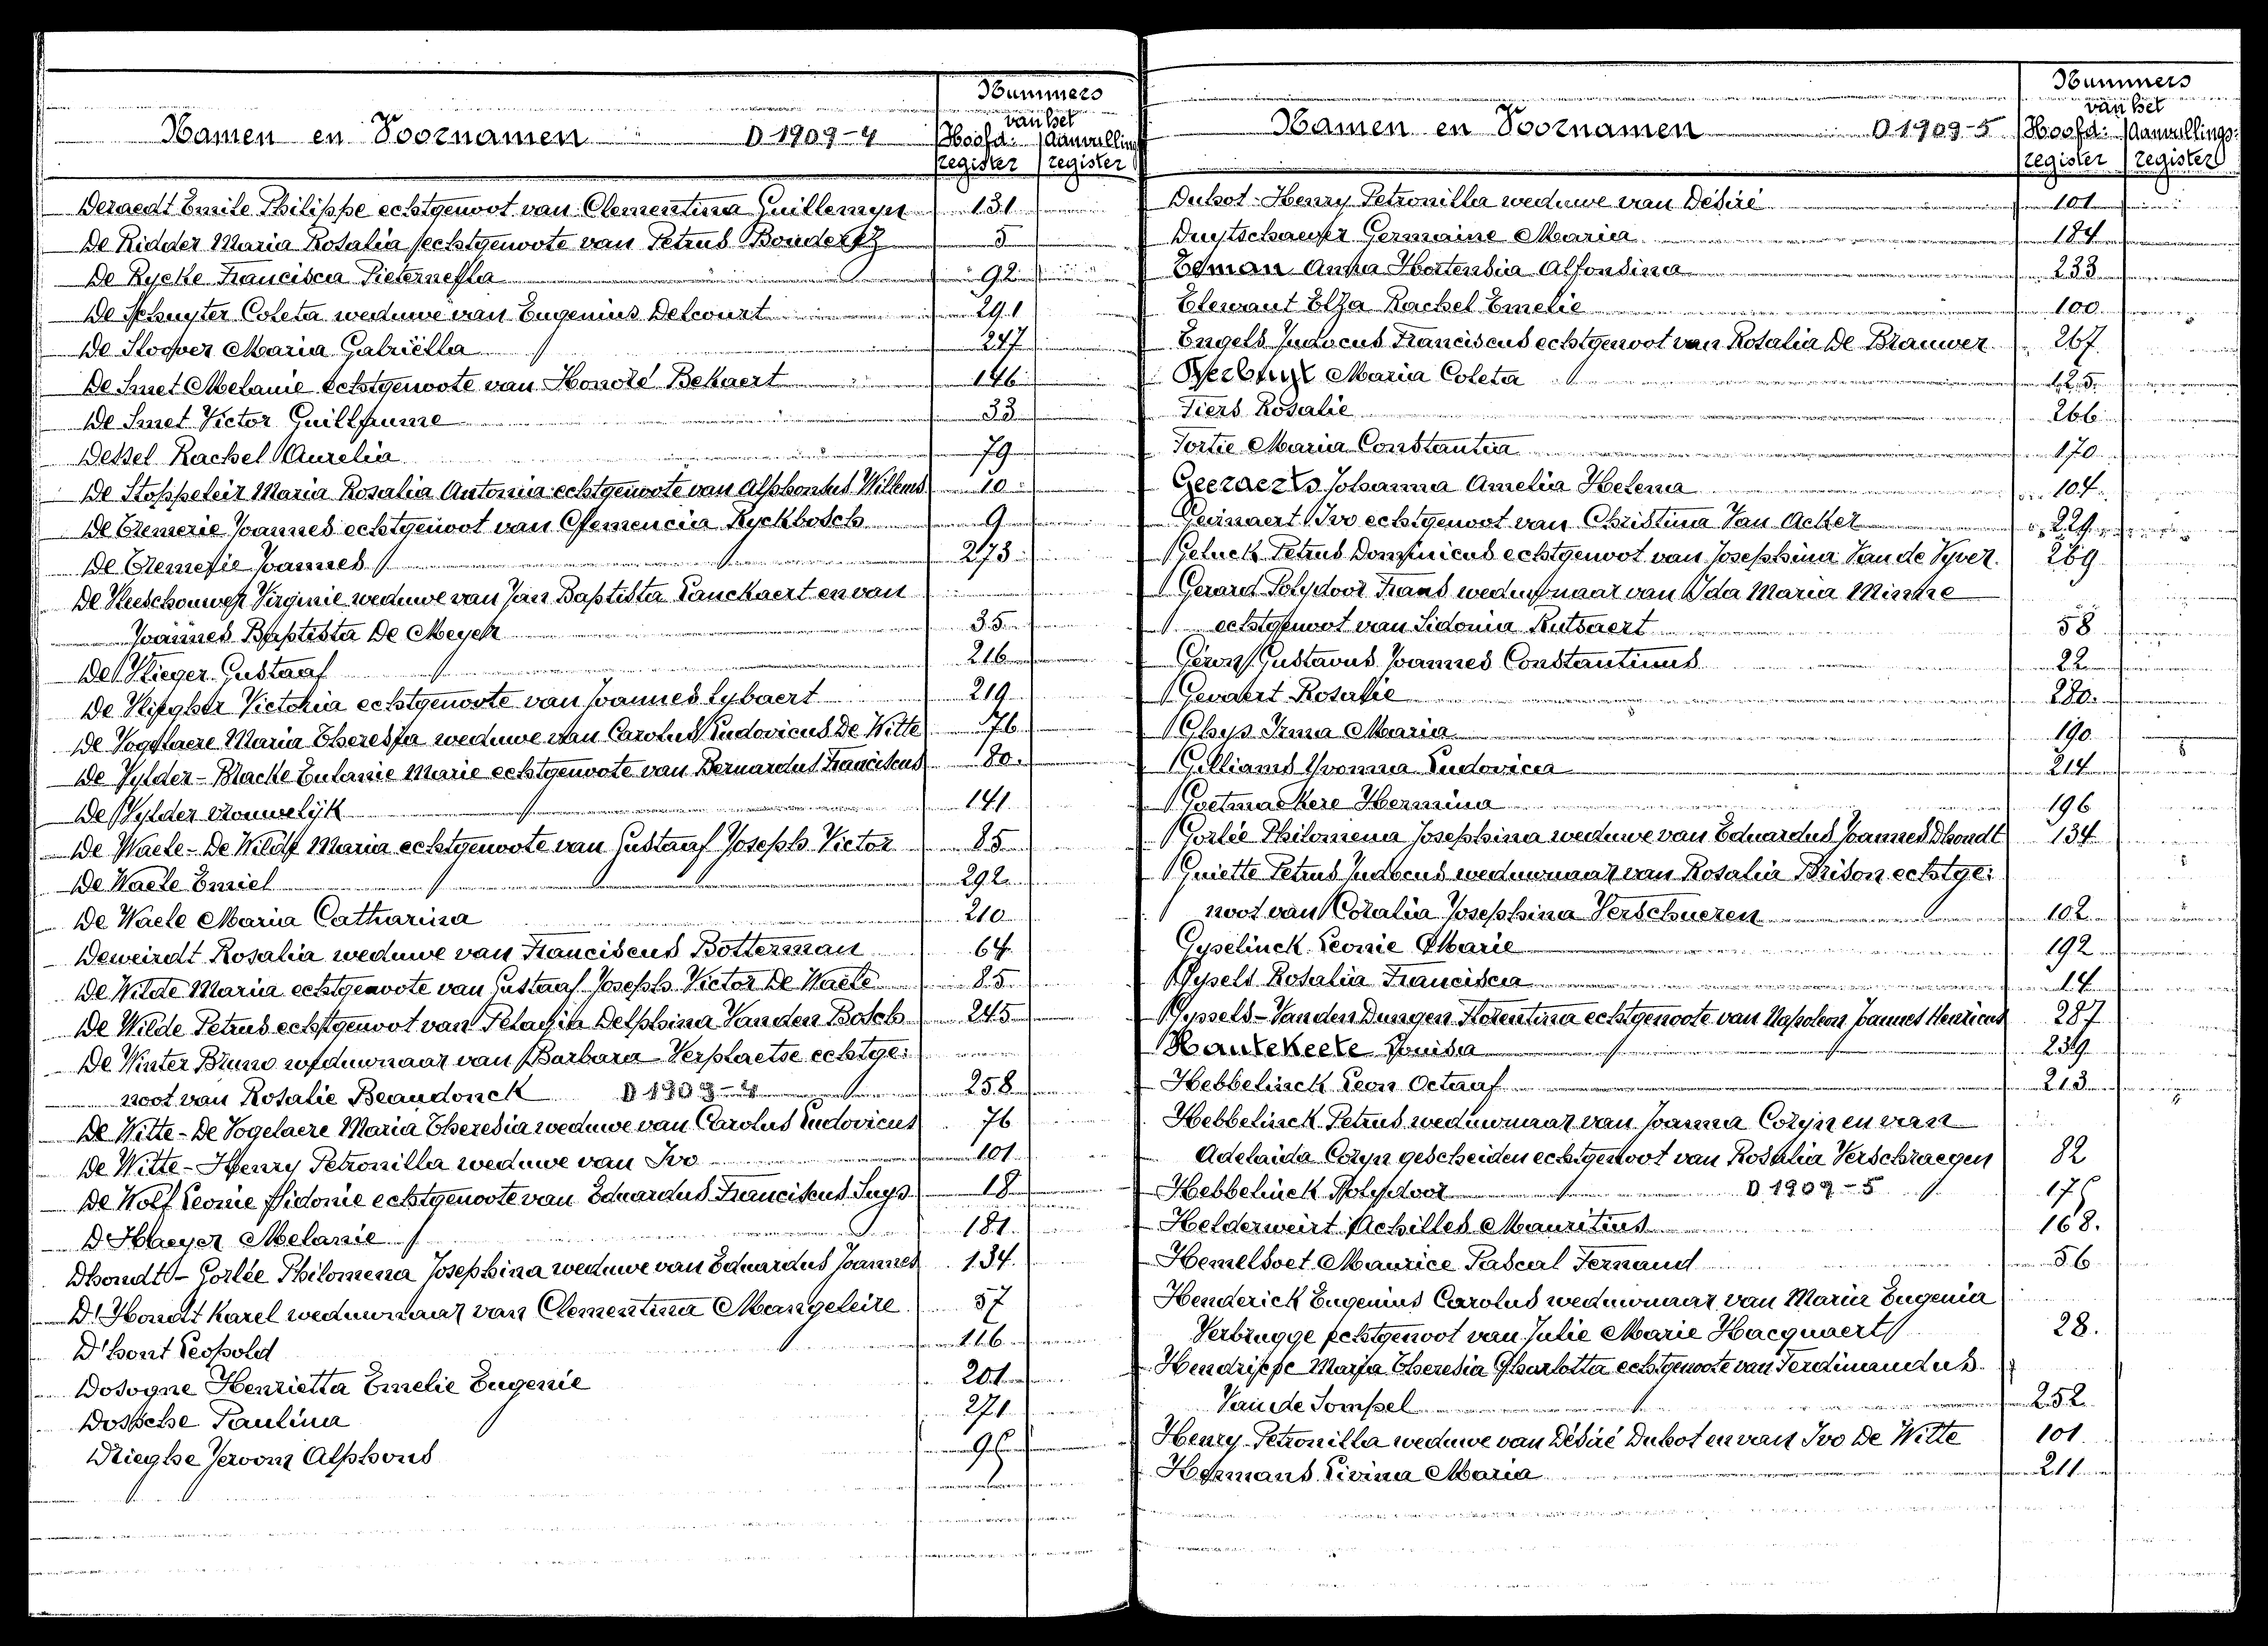 Nummers
van het
Namen en Voornamen D 1909-4 Hoofd- Aanvulling
register register
Deraedt Emile Philippe echtgenoot van Clementina Guillemyn 131
De Ridder Maria Rosalia echtgenoote van Petrus 5
De Rycke Francisca Pieternella 92
De Schuyter Coleta weduwe van Eugenius Delcourt 291
De Sloover Maria Gabriëlla 247
De Smet Melanie echtgenoote van Honoré Bekaert 146
De Smet Victor Guillaume 33
Dessel Rachel Aurelia 79
De Stoppeleir Maria Rosalia Antonia echtgenoote van Alphonsus Willems 10
De Clemerie Joannes echtgenoot van Clemencia Ryckbosch 9
De Joannes 273
De Virginie weduwe van Jan Baptista Lanckaert en van
Joannes Baptista De Meyer 35
De Vlieger Gustaaf 216
De Victoria echtgenoote van Joannes Lybaert 219
De Vogelaere Maria Theresia weduwe van Carolus Ludovicus De Witte 76
De Vylder-Blacke Eulanie Marie echtgenoote van Bernardus Franciscus 80
De Vylder vrouwelijk 141
De Waele-De Wilde Maria echtgenoote van Gustaaf Joseph Victor 85
De Waele Emiel 292
De Waele Maria Catharina 210
Deweirdt Rosalia weduwe van Franciscus Botterman 64
De Wilde Maria echtgenoote van Gustaaf Joseph Victor De Waele 85
De Wilde Petrus echtgenoot van Pelagia Delphina Vanden Bosch 245
De Winter Bruno weduwnaar van Barbara Verplaetse echtge:
noot van Rosalie Beaudonck D 1909-4 258
De Witte-De Vogelaere Maria Theresia weduwe van Carolus Ludovicus 76
De Witte-Henry Petronilla weduwe van Ivo 101
De Wolf Leonie Sidonie echtgenoote van Eduardus Franciscus Suys 18
D'Haeyer Melanie 181
Dhondt-Gorlée Philomena Josephina weduwe van Eduardus Joannes 134
D'Hondt Karel weduwnaar van Clementina Mangeleire 57
D'hont Leopold 116
Dosogne Henrietta Emelie Eugenie 201
Dossche Paulina 271
Drieghe Jeroom Alphons
Nummers
van het
Namen en Voornamen D 1909-5 Hoofd- Aanvullings-
register register
Duhot-Henry Petronilla weduwe van Désiré 101
Duytschaever Germaine Maria 184
Edman Anna Hortensia Alfonsina 233
Elewaut Elza Rachel Emelie 100
Engels Judocus Franciscus echtgenoot van Rosalia De Brauwer 267
Maria Coleta 125
Fiers Rosalie 266
Fortie Maria Constantia 170
Geeraerts Johanna Amelia Helena 104
Geirnaert Ivo echtgenoot van Christina Van Acker 224
Geluck Petrus Dominicus echtgenoot van Josephina Van de Vyver 269
Gerard Polydoor Frans weduwnaar van Ida Maria Minne
echtgenoot van Sidonia Rutsaert 58
Gustavus Joannes Constantinus 22
Gevaert Rosalie 280
Ghys Irma Maria 190
Gilliams Yvonna Ludovica 214
Goetmackere Hermina 196
Gorlée Philomena Josephina weduwe van Eduardus Joannes Dhondt 134
Guiette Petrus Judocus weduwnaar van Rosalia Brison echtge:
noot van Coralia Josephina Verschueren 102
Gyselinck Leonie Marie 192
Gysels Rosalia Francisca 14
Gyssels-Vanden Dungen Florentina echtgenoote van Napoleon Joannes Henricus 287
Hautekeete Louisa 239
Hebbelinck Leon Octaaf 213
Hebbelinck Petrus weduwnaar van Joanna Coryn en van
Adelaida Coryn gescheiden echtgenoot van Rosalia Verschraegen 82
Hebbelinck Polydoor D 1909-5
Helderweirt Achilles Mauritius 168.
Hemelsoet Maurice Pascal Fernand 56
Henderick Eugenius Carolus weduwnaar van Maria Eugenia
Verbrugge echtgenoot van Julie Marie Hacquaert 28.
Maria Theresia Charlotta echtgenoote van Ferdinandus
Van de Sompel 252
Henry Petronilla weduwe van Désiré Duhot en van Ivo De Witte 101
Hermans Livina Maria 211